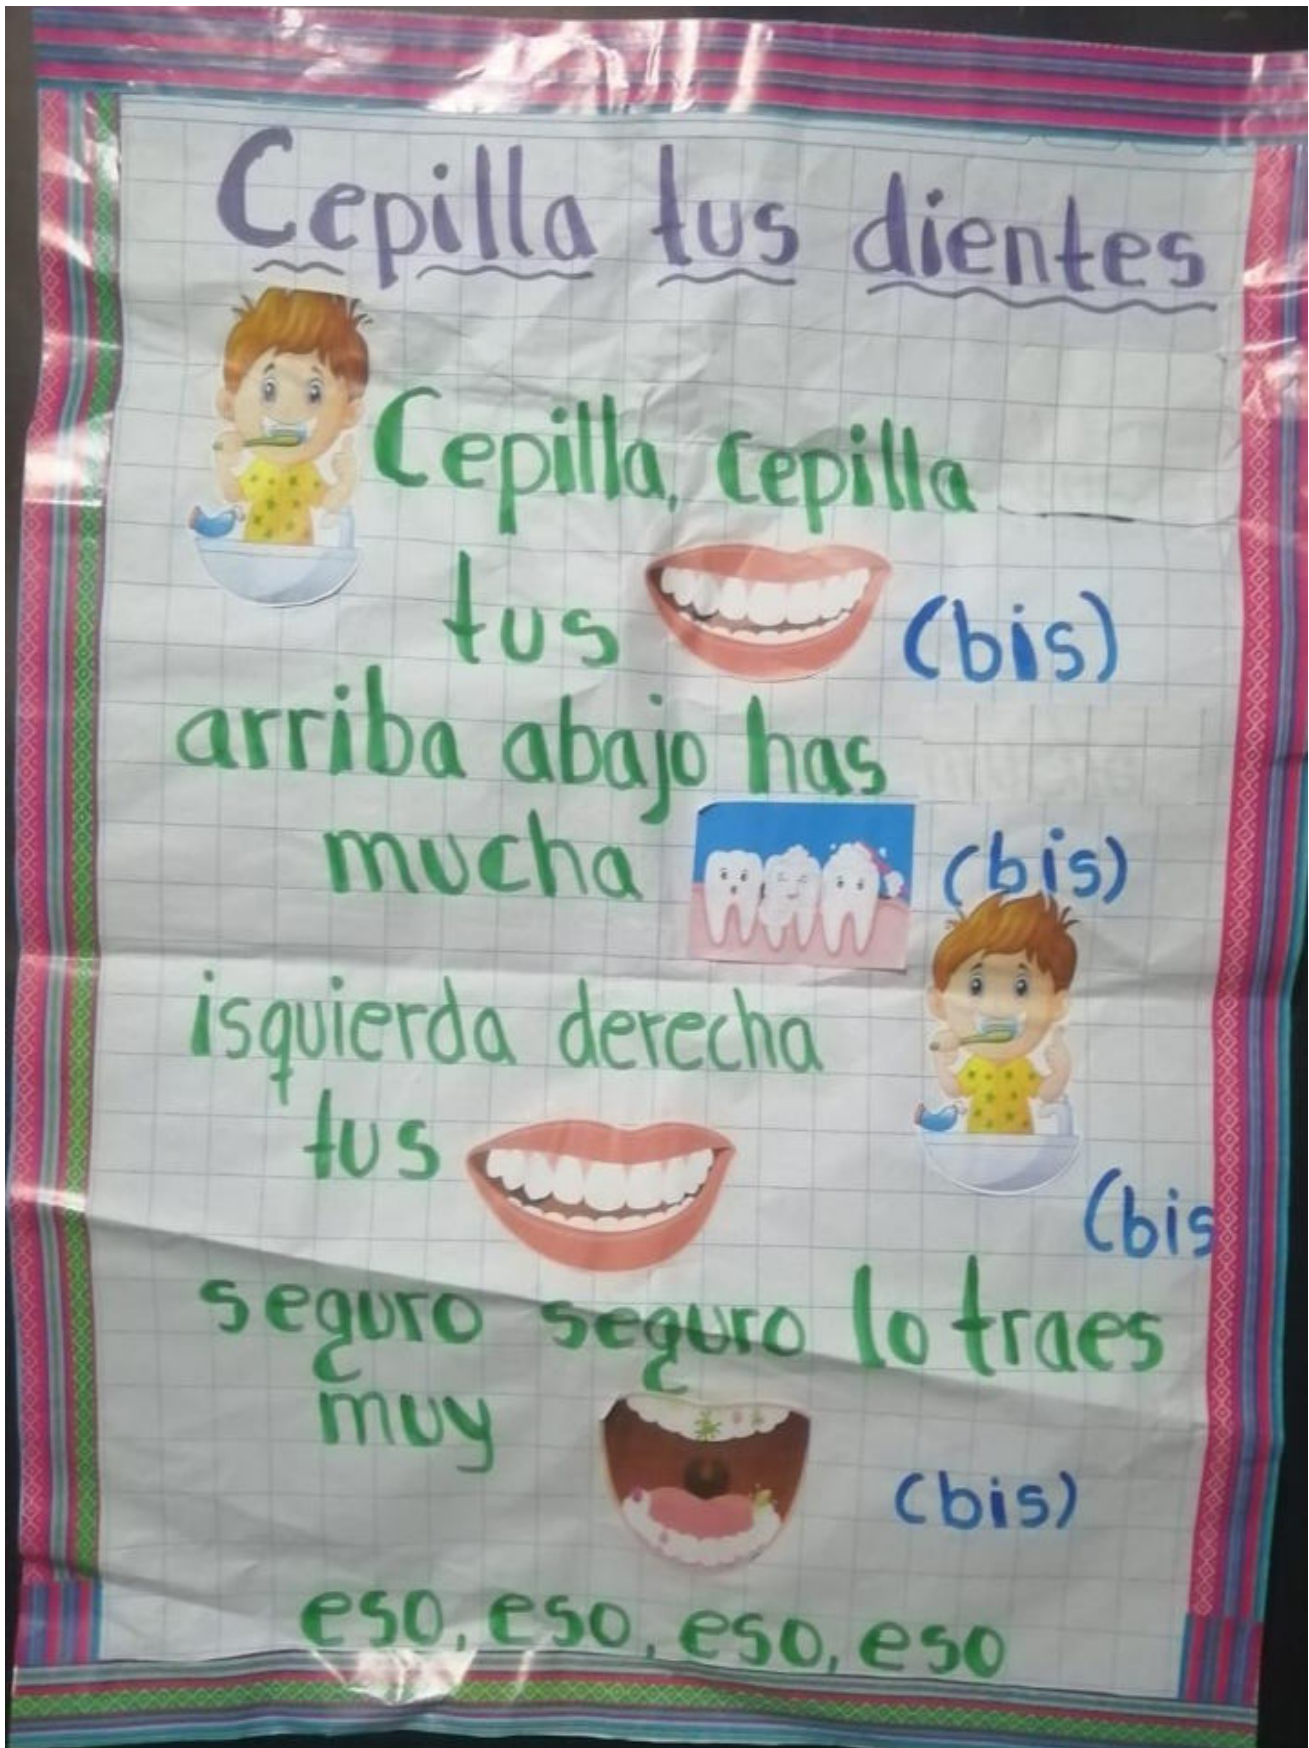 Cepilla tus dientes
Cepilla, cepilla
tus (bis)
arriba abajo has
mucha (bis)
isquierda derecha
tus
(bis
seguro seguro lo traes
muy
(bis)
eso, eso, eso, eso